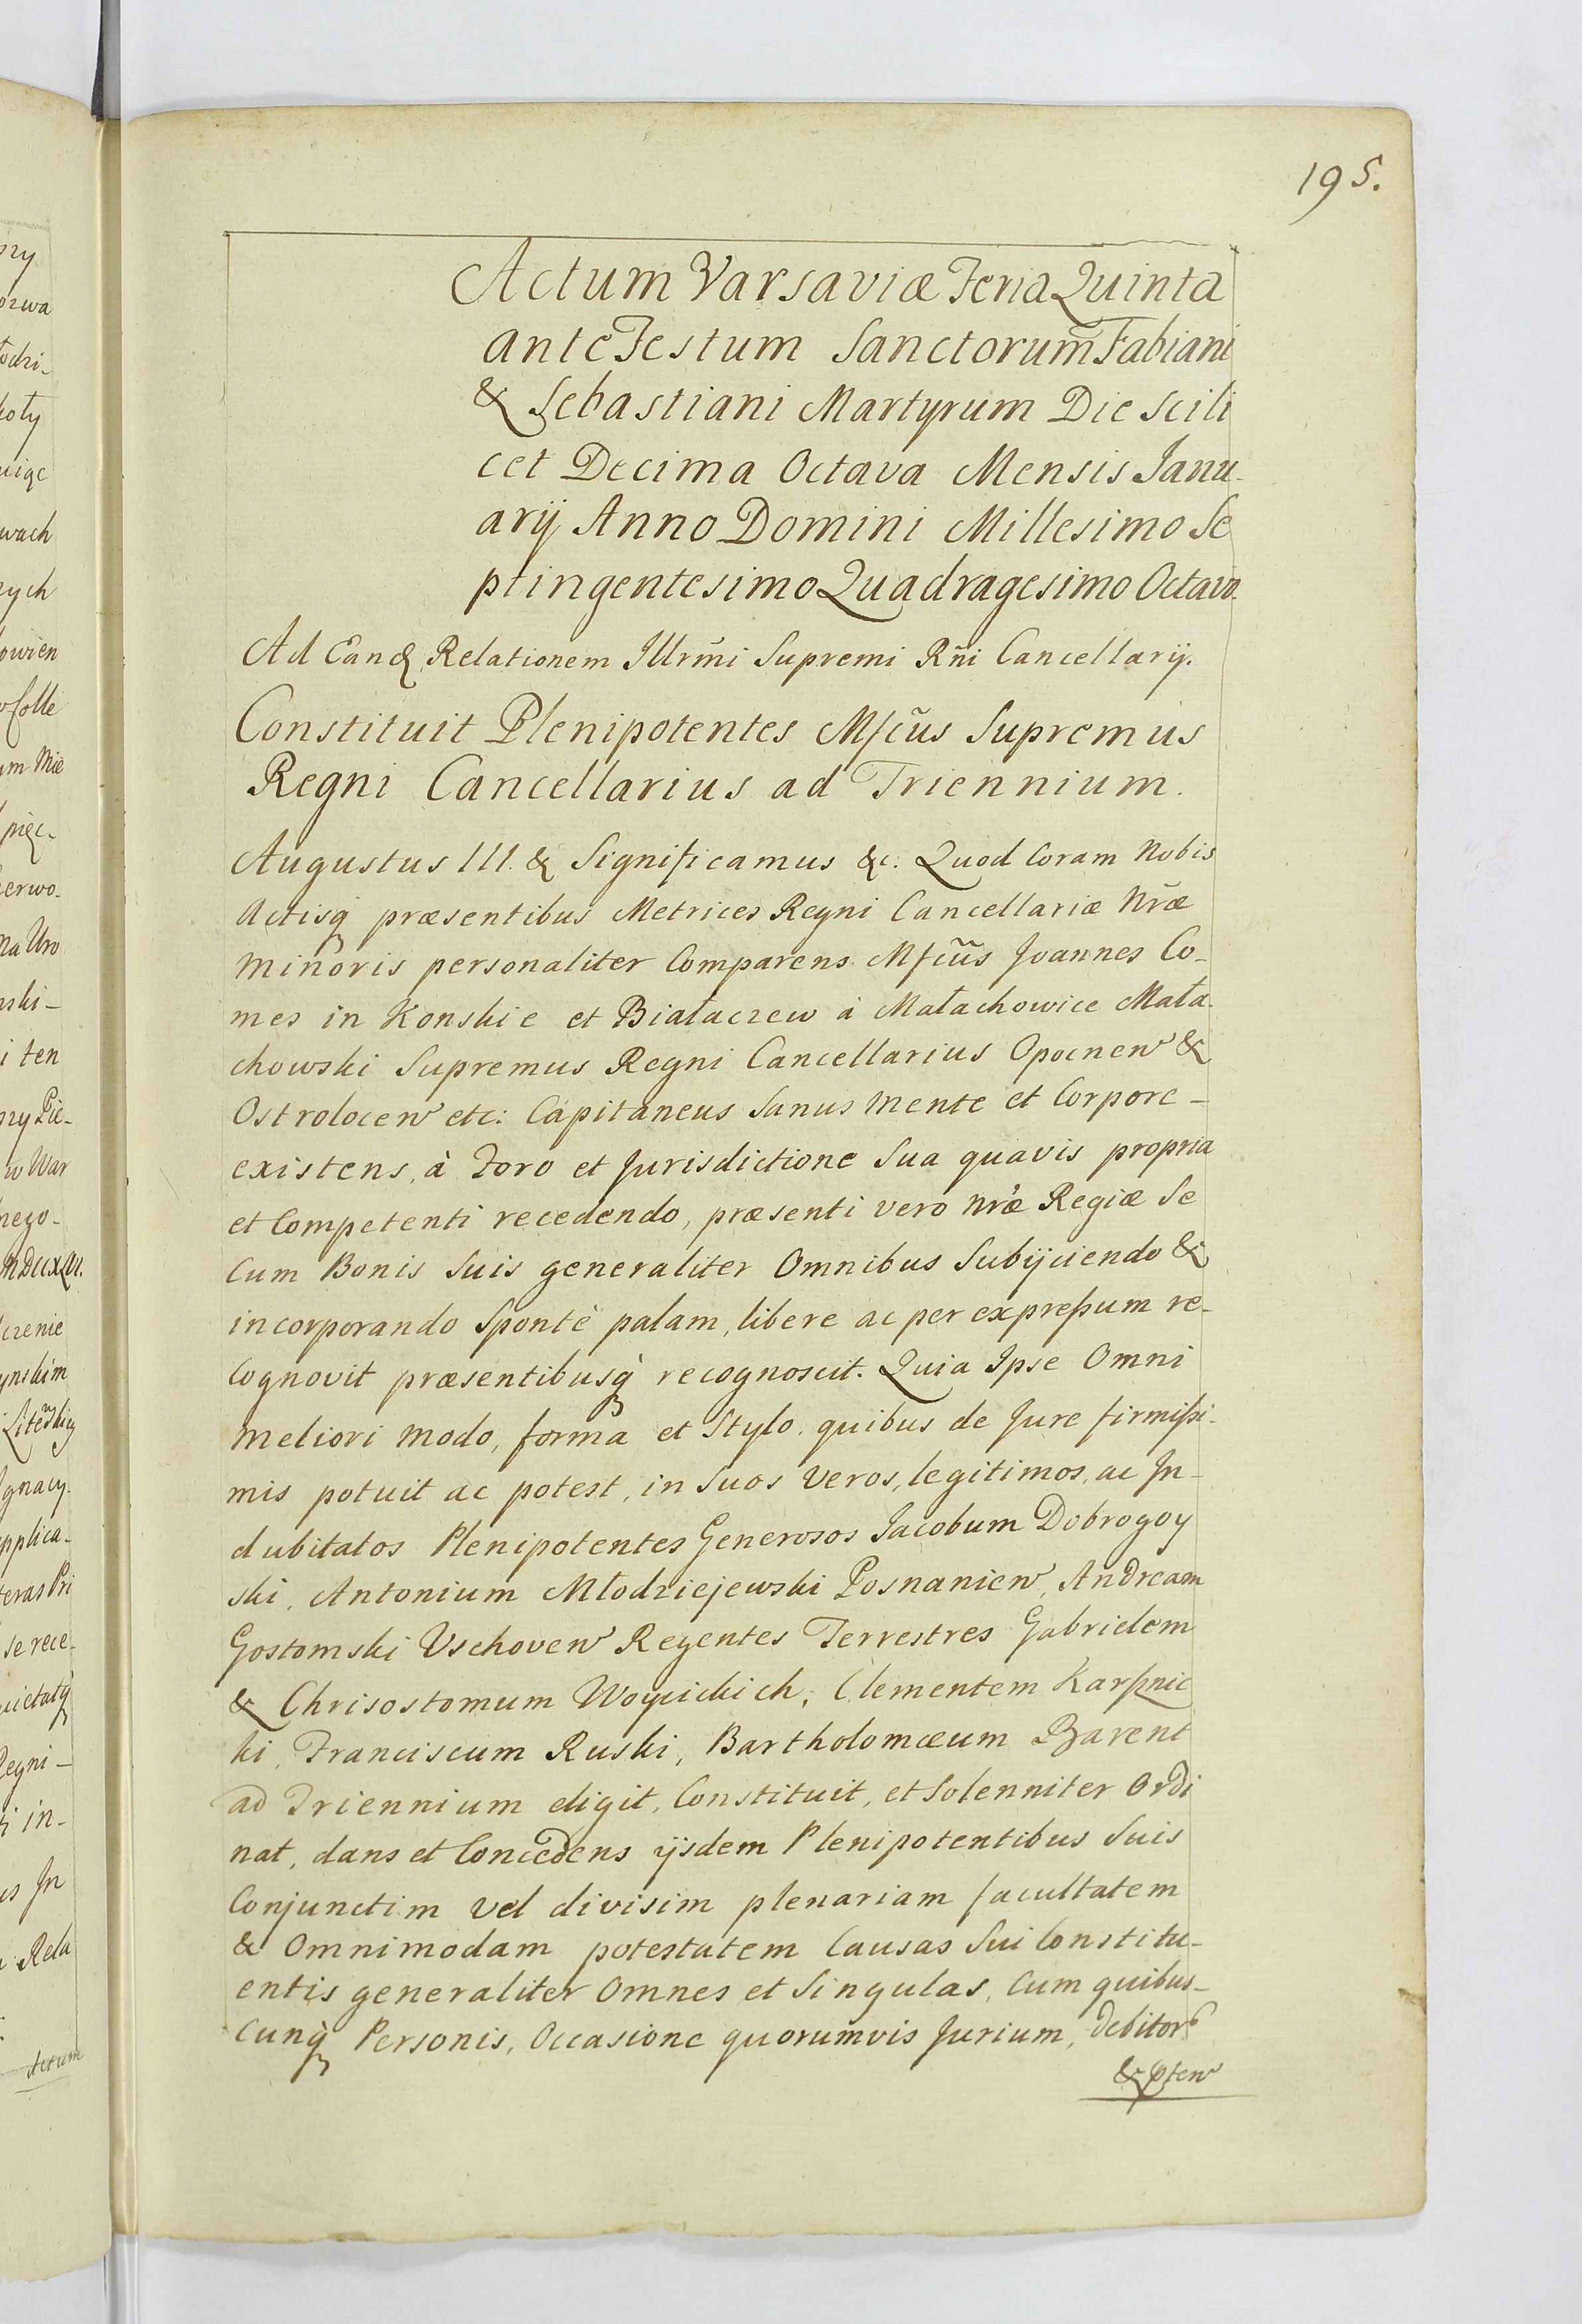 195.
Actum Varsaviæ Feria Quinta
ante Festum Sanctorum̃ Fabiani
& Sebastiani Martyrum Die Scili
cet Decima Octava Mensis Janu-
arij Anno Domini Millesimo Se
ptingentesimo Quadragesimo Octavo
Ad Eandq Relationem Illrm̃i Supremi Rñi Cancellarij.
Constituit Plenipotentes Mfcũs Supremus
Regni Cancellarius ad Triennium.
Augustus III. & Significamus &c. Quod Coram Nobis
Actisq̀ præsentibus Metrices Regni Cancellariæ Nr̃æ
Minoris personaliter Comparens Mfcũs Joannes Co-
mes in Konskie et Białaczew à Małachowice Mała-
chowski Supremus Regni Cancellarius Opocnen &
Ostrolocen etc: Capitaneus Sanus Mente et Corpore-
existens, à Foro et Jurisdictione Sua quavis propria
et Competenti recedendo, præsenti vero nr̃æ Regiæ Se
Cum Bonis Suis generaliter Omnibus Subijciendo &
incorporando Spontè palam, libere ac per expreßum re-
Cognovit præsentibusq̀ recognoscit. Quia Ipse Omni
Meliori Modo, formâ et Stylo, quibus de Jure firmißi-
mis potuit ac potest, in Suos Veros, legitimos, ac In-
dubitatos Plenipotentes Generosos Jacobum Dobrogoy
ski, Antonium Młodziejewski Posnanien, Andream
Gostomski Vschoven Regentes Terrestres Gabrielem
& Chrisostomum Woycickich, Clementem Karśnic
ki, Franciscum Ruski, Bartholomæum Zarent
ad Triennium eligit, Constituit, et Solenniter Ordi
nat, dans et Concedens ijsdem Plenipotentibus Suis
Conjunctim vel divisim plenariam facultatem
& Omnimodam potestatem Causas Sui Constitu-
entis generaliter Omnes et Singulas, Cum quibus-
cunq̀ Personis, Occasione quorumvis Jurium, debitor
Actum